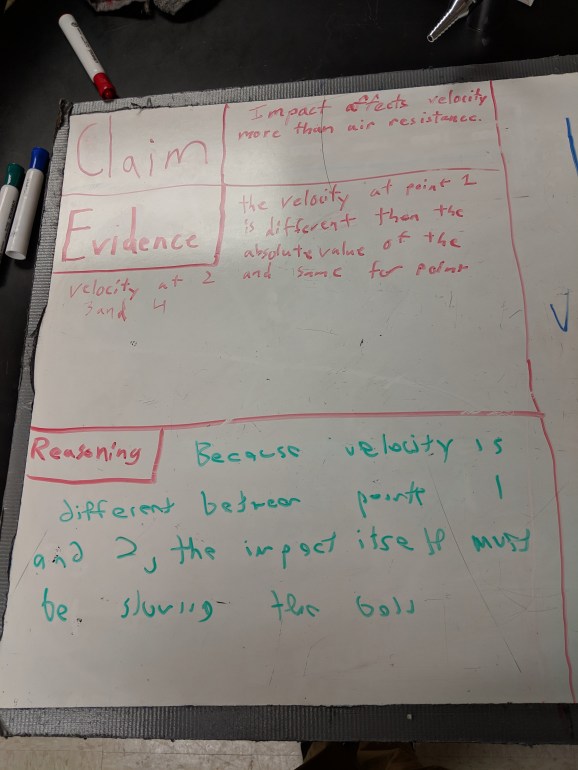 Claim
Impact affects velocity
more than air resistance.
Evidence
the velocity at point 1
is different then the
absolute value of the
velocity at 2 and same for point
3 and 4
Reasoning
Because velocity is
different between points 1
and 2, the impact itself must
be slowing the ball